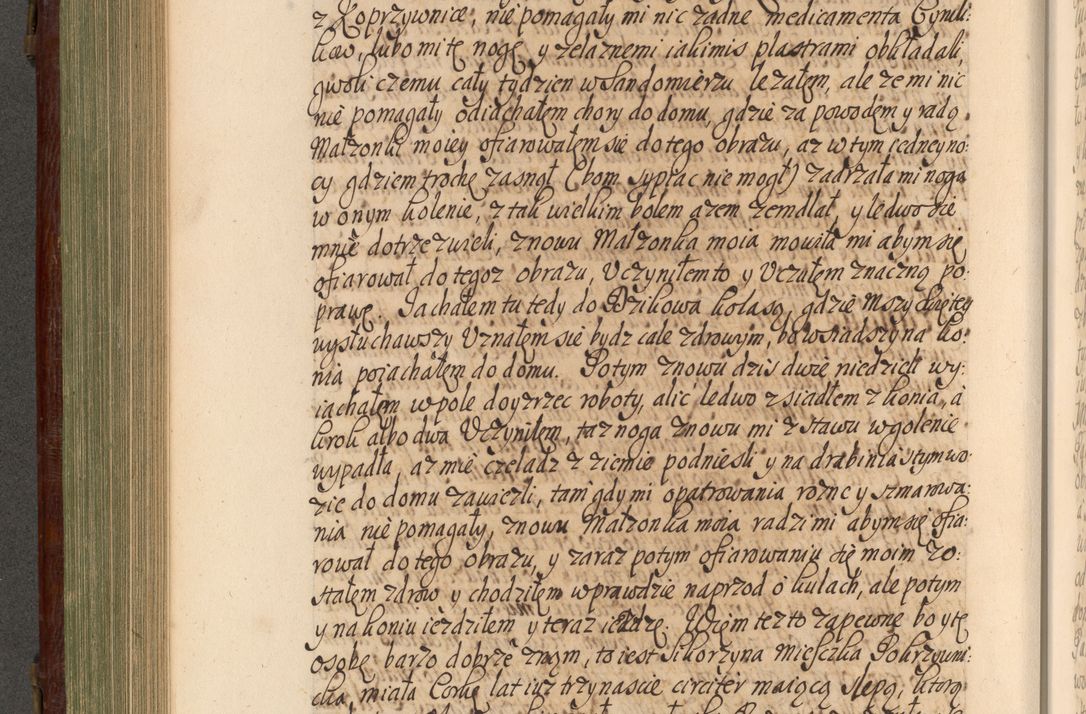 z Koprzywnice, nie pomagały mi nic zadne medicamenta Cyruli:
kow, lubo mi tę nogę y zelaznemi iakimis plastrami obkładali,
gwoli czemu cały tydzien w Sandomierzu lezałem, ale ze mi nic
nie pomagały odiachałem chory do domu, gdzie za powodem y radą
Małzonki moiey ofiarowałem się do tego obrazu, az w tym iedney no:
cy gdziem trochę zasnął (bom sypiac nie mogł) zadrzała mi noga
w onym kolenie, z tak wielkim bolem azem zemdlał, y ledwo się
mnie dotrzezwieli, znowu Małzonka moia mowiła mi abym się
ofiarował do tegoz obrazu, Uczyniłem to y Uczułem znaczną po:
prawę. Jachałem tu tedy do Dzikowa kolasą, gdzie Mszy Swiętey
wysłuchawszy Uznałem się bydz cale zdrowym, bo wsiadszy na ko:
nia poiachałem do domu. Potym znowu dzis dwie niedzieli wy:
iachałem w pole doyzrzec roboty, alić ledwo zsiadłem z konia, a
krok albo dwa Uczyniłem, taz noga znowu mi z stawu w golenie
wypadła, az mie czeladz z ziemie podniesli y na drabinia stym wo:
zie do domu zawiezli, tam gdy mi opatrowania rozne y szmarowa:
nia nie pomagały, znowu Małzonka moia radzi mi abym się ofia:
rował do tego obrazu, y zaraz potym ofiarowaniu się moim zo:
stałem zdrow y chodziłem wprawdzie naprzod o kulach, ale potym
y na koniu iezdziłem y teraz iezdzę. Wiem tez to zapewne bo y tę
osobę barzo dobrze znam, to iest Sikorzyna Mieszczka Pokrzywni:
cka, miała Corkę lat iuz trzynascie circiter maiącą slepą, ktorą